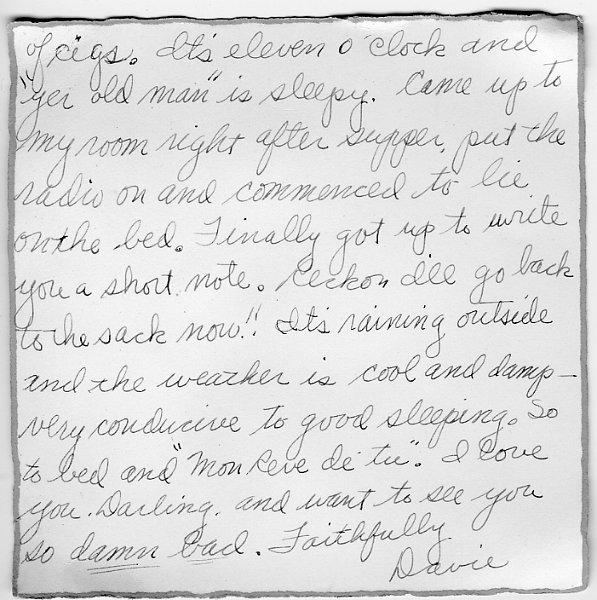 of cigs. It's eleven o'clock and
"yer old man" is sleepy. Came up to
my room right after supper, put the
radio on and commenced to lie
on the bed. Finally got up to write
you a short note. Reckon I'll go back
to the sack now!! It's raining outside
and the weather is cool and damp—
very conducive to good sleeping. So
to bed and "Mon Reve de tu". I love
you, Darling, and want to see you
so damn bad. Faithfully
Davie